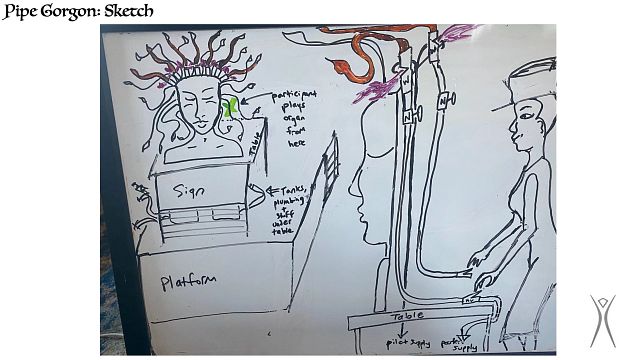 Pipe Gorgon: Sketch
participant
plays
organ
from
here
Table
Sign
Tanks,
plumbing
+
stuff
under
table
Platform
N
N
Table
pilot supply
supply